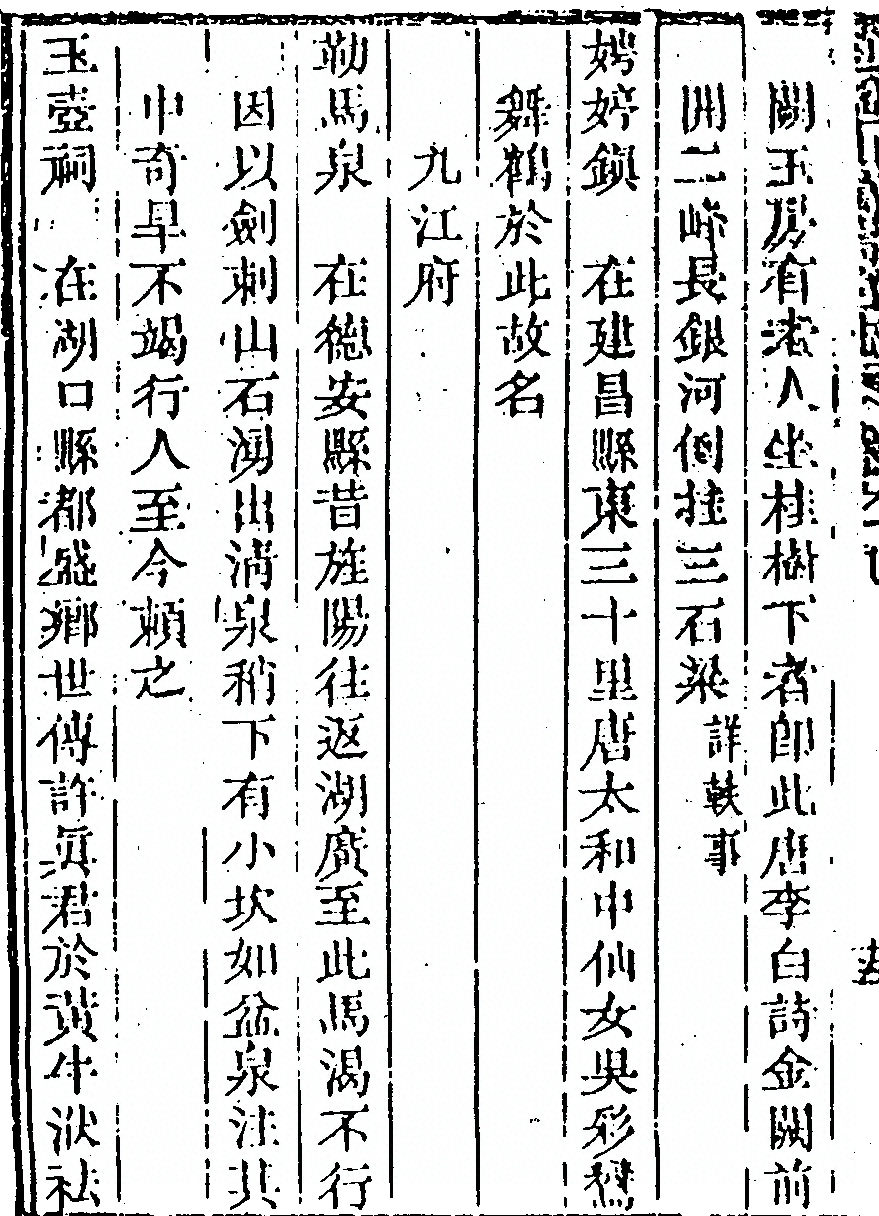 闕玉房有老人坐桂樹下者即此唐李白詩金闕前
開二峰長銀河倒挂三石梁詳軼事
娉婷鎮　在建昌縣東三十里唐太和中仙女吳彩鸞
舞鶴於此故名
九江府
勒馬泉　在德安縣昔旌陽往返湖廣至此馬渴不行
因以劍刺山石湧出淸泉稍下有小坎如盆泉注其
中奇旱不竭行人至今賴之
玉壺祠　在湖口縣都盛鄉世傳許眞君於黃牛洑袪